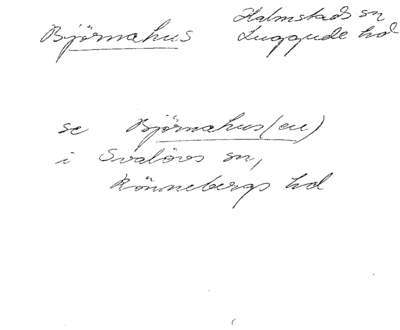 Björnahus
Halmstads sn
Luggude hd
se Björnahus(en)
i Svalövs sn,
Rönnebergs hd